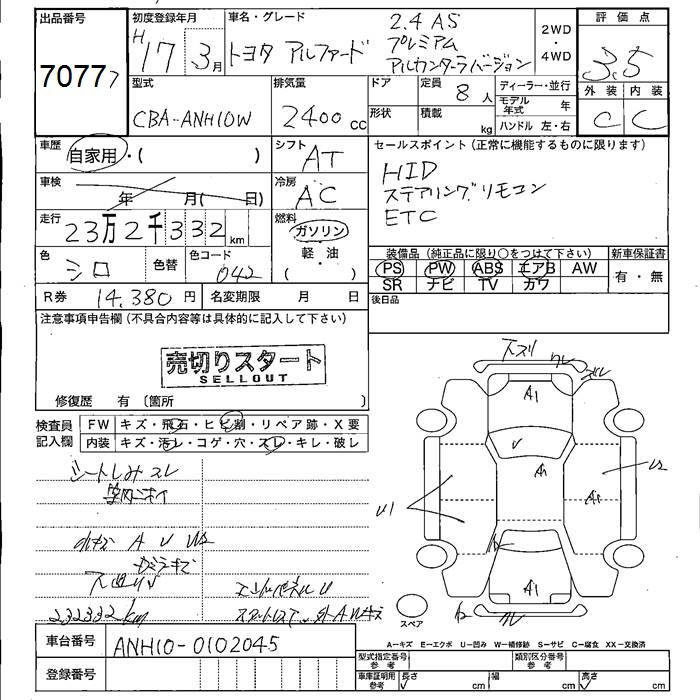 出品番号 初度登録年月 車名・グレード 評価点
70777 H17 3月 トヨタ アルファード 2.4 AS プレミアム アルカンターラバージョン 2WD・4WD 3.5
型式 排気量 ドア 定員 8人 ディーラー・並行 外装 内装
CBA-ANH10W 2400cc 形状 積載 kg モデル年式 年 C C
ハンドル 左・右
車歴 自家用・( ) シフト AT セールスポイント (正常に機能するものに限ります)
HID
車検 年 月( 日) 冷房 AC ステアリングリモコン
ETC
走行 23万2千332km 燃料 ガソリン・軽油 ( )
装備品 (純正品に限り○をつけて下さい) 新車保証書
色 シロ 色替 色コード 042
PS PW ABS エアB AW 有・無
SR ナビ TV カワ
R券 14,380円 名変期限 月 日 後日品
注意事項申告欄 (不具合内容等は具体的に記入して下さい)
売切りスタート
SELLOUT
修復歴 有 〔箇所 〕
検査員記入欄 FW キズ・飛石・ヒビ割・リペア跡・X要
内装 キズ・汚レ・コゲ・穴・スレ・キレ・破レ
シートしみスレ
A U W2
232332km
下スリ
A1
A1
A1
A1
U1
U2
U
スペア
A-キズ E-エクボ U-凹み W-補修跡 S-サビ C-腐食 XX-交換済
車台番号 ANH10-0102045
型式指定番号 参考 類別区分番号 参考
登録番号
車庫証明用 参考 長さ cm 幅 cm 高さ cm